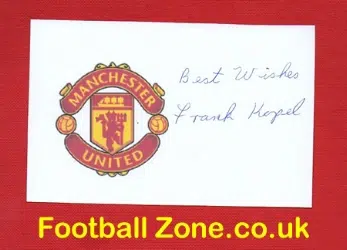 MANCHESTER
UNITED
Best Wishes
Frank Kopel
Football Zone.co.uk